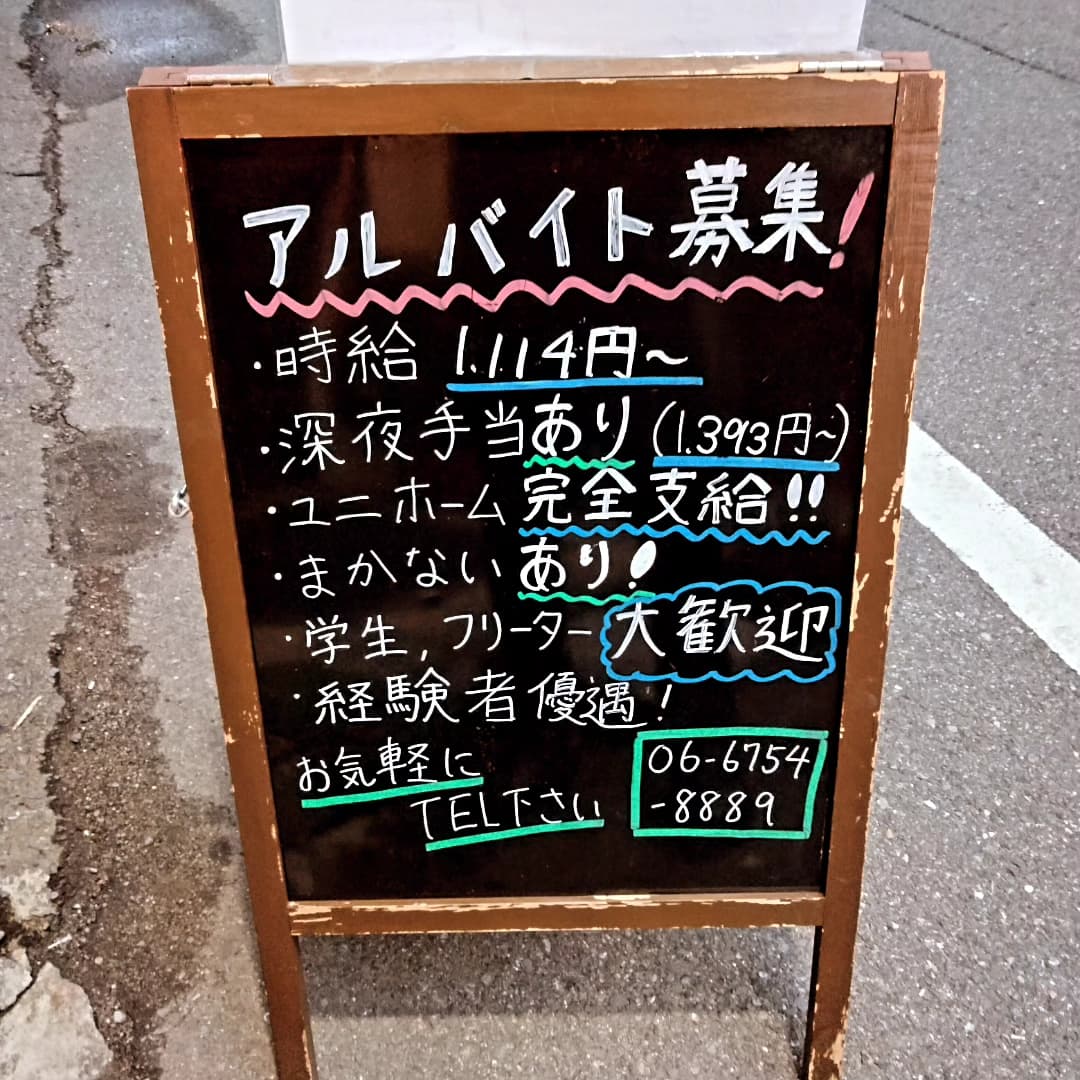 アルバイト募集!
・時給 1.114円~
・深夜手当あり(1.393円~)
・ユニホーム完全支給!!
・まかないあり!
・学生,フリーター大歓迎
・経験者優遇!
お気軽に
TEL下さい
06-6754
-8889